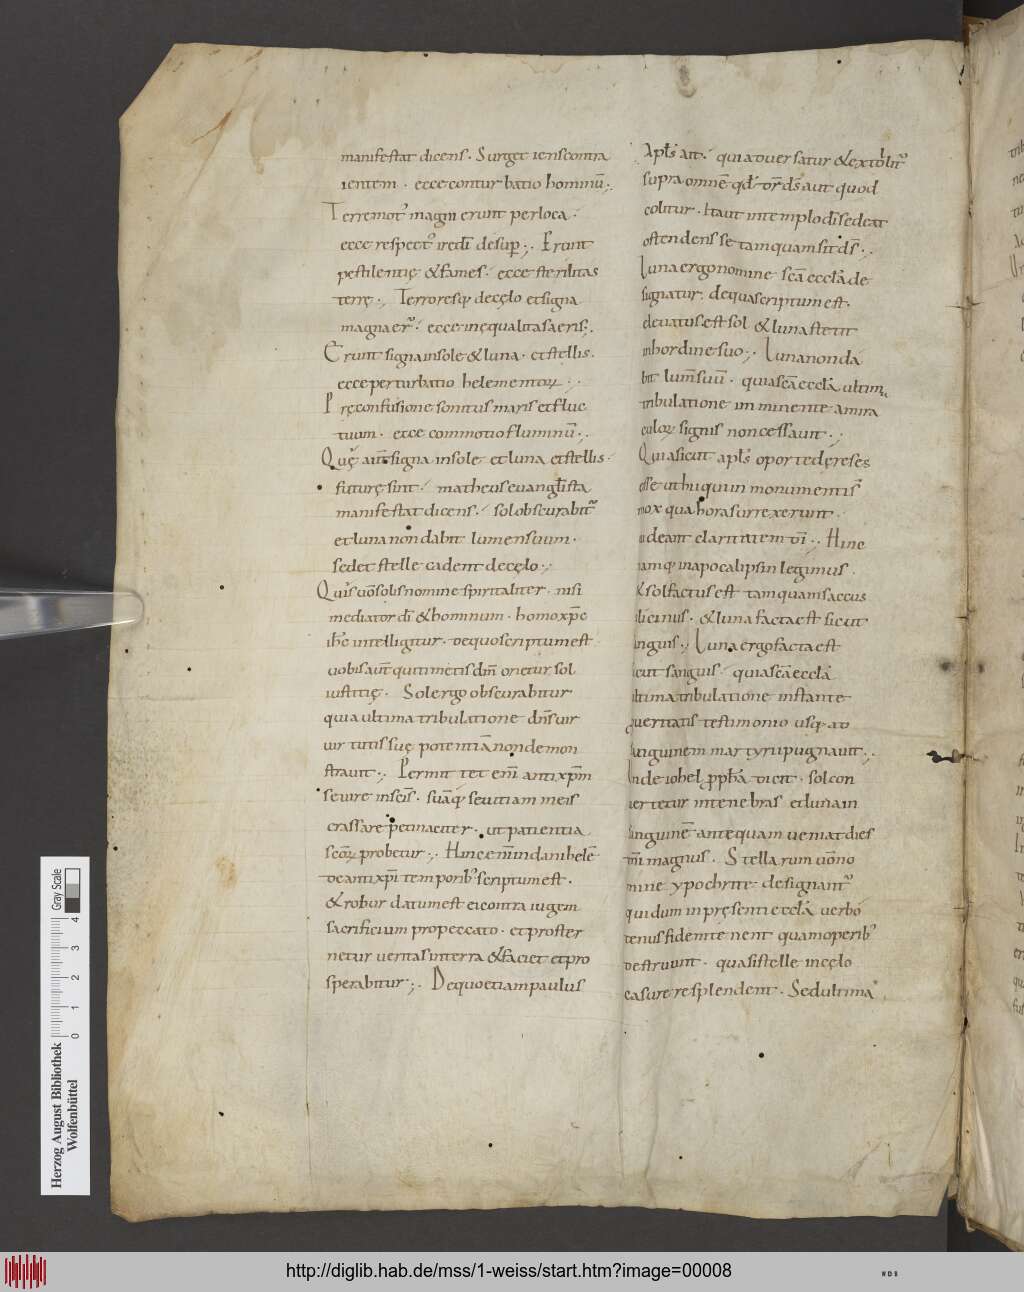 manifestat dicens · Surget gens contra
gentem · ecce conturbatio hominū ;
Terremotꝰ magni erunt per loca ·
ecce respectꝰ iredī desup ; Erunt
pestilentię & fames · ecce sterilitas
terrę ; Terroresq; de cęlo et signa
magna erꝰ · ecce inęqualitas aeris ;
Erunt signa in sole & luna · et stellis ·
ecce perturbatio helementoꝝ ;
Pręconfusione sonitus maris et fluc
tuum · ecce commotio fluminū ;
Quę aūt signa in sole et luna et stellis ·
futurę sint · matheus euanglīsta
manifestat dicens · sol obscurabitꝰ
et luna non dabit lumen suum ·
sed et stelle cadent de cęlo ;
Quis uō solis nomine spiritaliter · nisi
mediator dī & hominum · homo xp̄c
ihc̄ intelligitur · de quo scriptum est
uobis aūt qui timetis dm̄ orietur sol
iustitię · Sol ergo obscurabitur
quia ultima tribulatione dn̄s uir
uir tutis suę potentiā non demon
strauit ; Permittet em̄ antixpm̄
seuire in scīs · suāq; seuitiam in eis
crassare petinaciter · ut patientia
scōꝝ probetur ; Hinc em̄ in danihelē
de antixpī temporibꝰ scriptum est ·
& robur datum est ei contra iugem
sacrificium pro peccato · et proster
netur ueritas in terra & faciet et pro
sperabitur ; De quo etiam paulus
apls̄ ait · qui aduersatur & extollitꝰ
supra omnē qd̄ dr̄ ds̄ aut quod
colitur · Ita ut in templo dī sedeat
ostendens se tamquam sit ds̄ ;
Luna ergo nomine scā ecclā de
signatur · de qua scriptum est ·
eleuatus est sol & luna stetit
in hordine suo ; Luna non da
bit lum̄ suū · quia scā ecclā ultima
tribulatione imminente a mira
culoꝝ signis non cessauit ;
Quia sicut apls̄ oportedęreses
esse ut hi qui in monumentis
mox qua hora surrexerunt ·
uideant claritatem dī ; Hinc
namq; in apocalipsin legimus ·
& sol factus est tamquam saccus
cilicinus · & luna facta est sicut
sanguis ; Luna ergo facta est
sicut sanguis · quia scā ecclā
ultima tribulatione instante
queritatis testimonio usq; ad
sanguinem martyrii pugnauit ;
Inde iohel ppḣā dicit · sol con
uertetur in tenebras et luna in
sanguinē antequam ueniat dies
dn̄i magnus · Stellarum uō no
mine ypochrite designantꝰ
qui dum in pręsenti ecclā uerbo
tenus fidem tenent quam operibꝰ
destruunt · quasi stelle in cęlo
casure resplendent · Sed ultima
Herzog August Bibliothek
Wolfenbüttel
0 1 2 3 4
Gray Scale
http://diglib.hab.de/mss/1-weiss/start.htm?image=00008